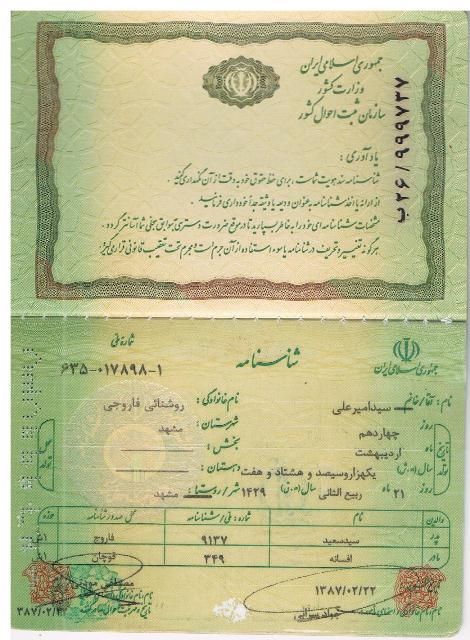 جمهوری اسلامی ایران
وزارت کشور
سازمان ثبت احوال کشور
ب ۲۶/۹۹۹۷۳۷
یادآوری:
شناسنامه سند هویت شماست، برای حفظ حقوق خود به دقت از آن نگهداری کنید.
از ارائه یا اخذ شناسنامه به عنوان ودیعه یا وثیقه جداً خودداری فرمائید.
مشخصات شناسنامه‌ای خود را به خاطر بسپارید تا در موقع ضرورت دسترسی به سوابق سجلی شما آسانتر گردد.
هرگونه تغییر و تحریف در شناسنامه یا سوء استفاده از آن جرم است و مجرم تحت تعقیب قانونی قرار می‌گیرد.
جمهوری اسلامی ایران
شناسنامه
شماره ملی
۶۳۵-۰۱۷۸۹۸-۱
نام: آقا/خانم سیدامیرعلی
نام خانوادگی: روشنائی فاروجی
تاریخ تولد
روز چهاردهم
ماه اردیبهشت
سال (ه.ش) یکهزاروسیصد و هشتاد و هفت
روز ۲۱ ماه ربیع الثانی سال (ه.ق) ۱۴۲۹
محل تولد
شهرستان: مشهد
بخش:
دهستان:
شهر/روستا: مشهد
والدین نام شماره: ملی/شناسنامه محل صدور شناسنامه حوزه
پدر سیدسعید ۹۱۳۷ فاروج
مادر افسانه ۳۴۹ قوچان
۱۳۸۷/۰۲/۲۲